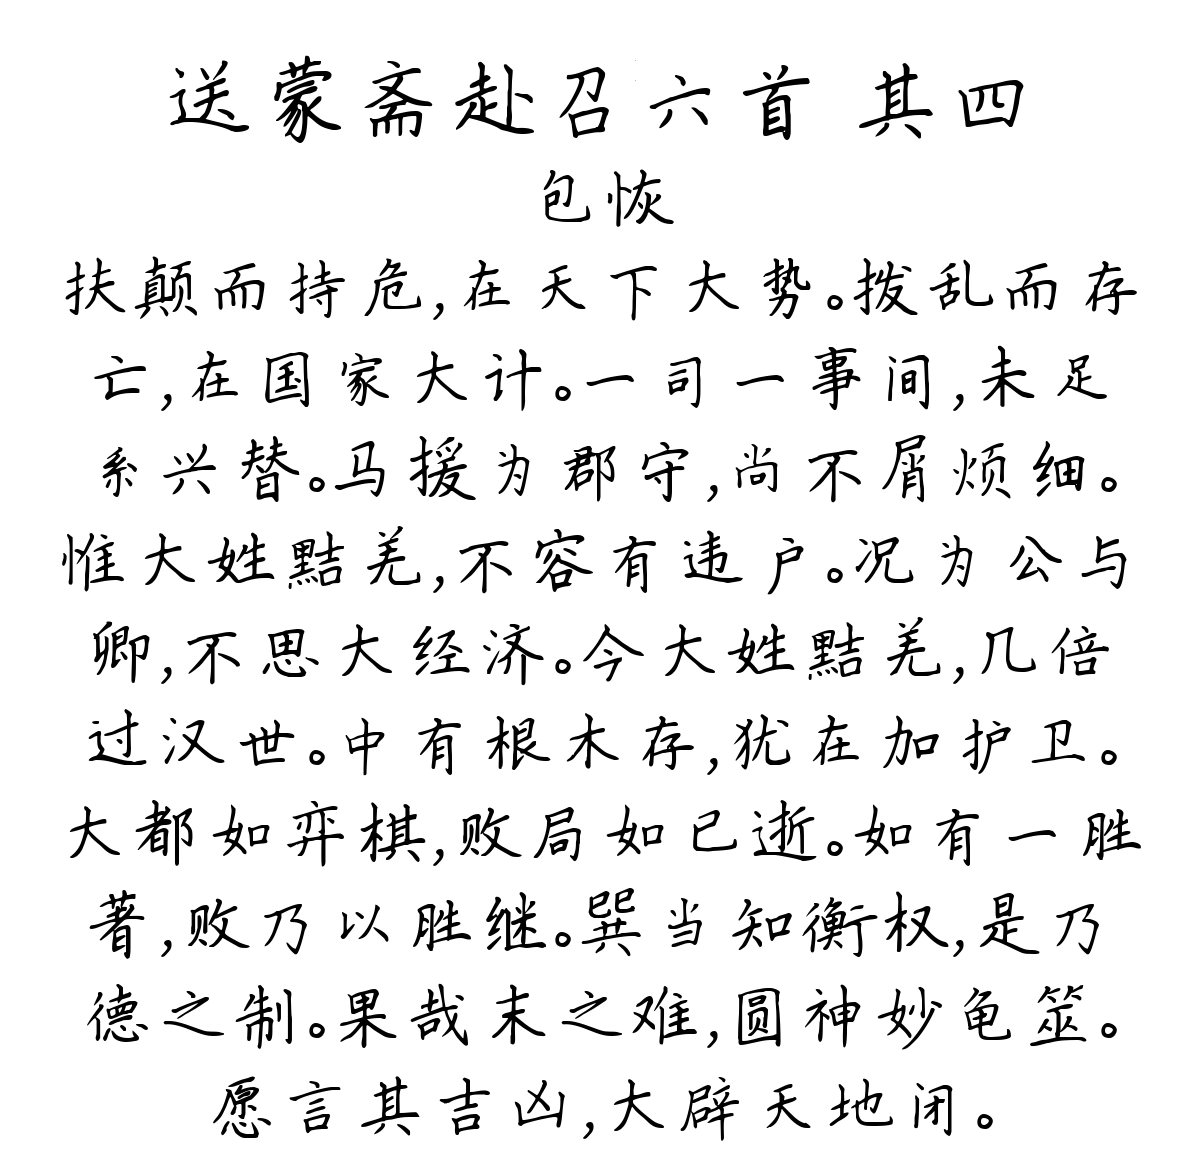 送蒙斋赴召六首 其四
包恢
扶颠而持危,在天下大势。拨乱而存
亡,在国家大计。一司一事间,未足
系兴替。马援为郡守,尚不屑烦细。
惟大姓黠羌,不容有违户。况为公与
卿,不思大经济。今大姓黠羌,几倍
过汉世。中有根木存,犹在加护卫。
大都如弈棋,败局如已逝。如有一胜
著,败乃以胜继。巽当知衡权,是乃
德之制。果哉末之难,圆神妙龟筮。
愿言其吉凶,大辟天地闭。